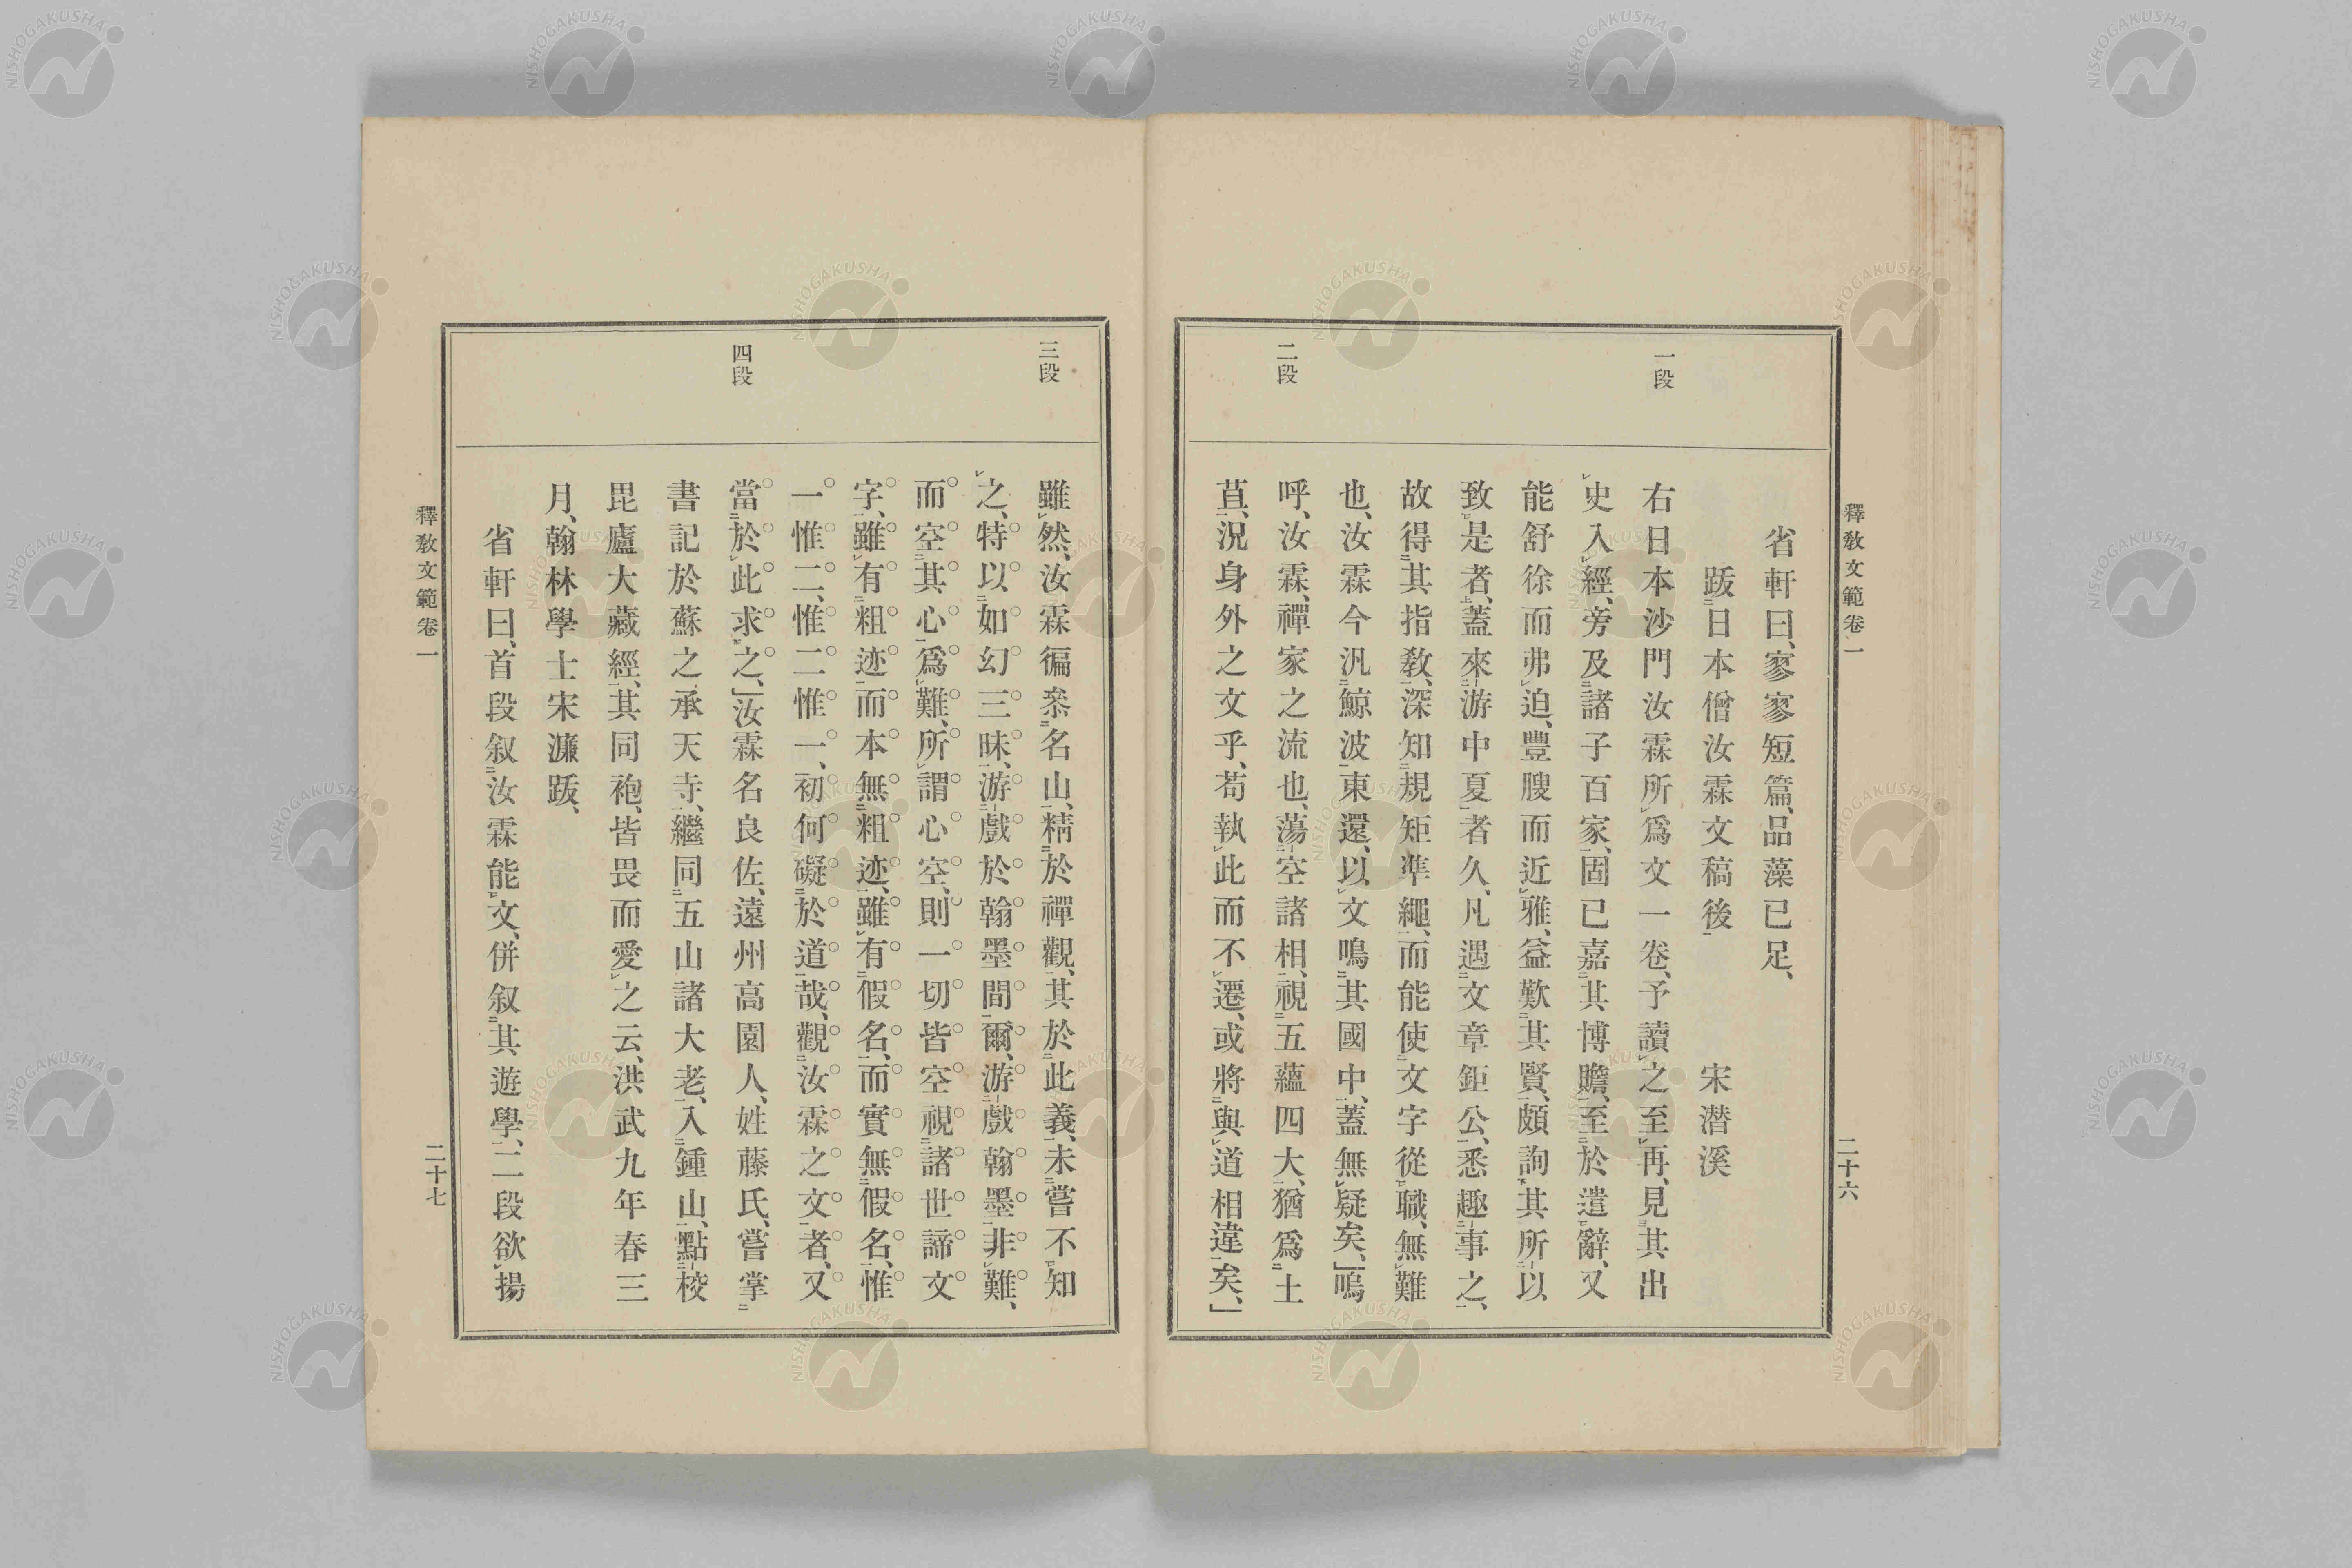 釋敎文範卷一
二十六
一段
二段
省軒曰、寥寥短篇、品藻已足、
跋日本僧汝霖文稿後　宋潜溪
右日本沙門汝霖所爲文一卷、予讀之至再、見其出
史入經、旁及諸子百家、固已嘉其博贍、至於遣辭、又
能舒徐而弗迫、豐腴而近雅、益歎其賢、頗詢其所以
致是者、蓋來游中夏者久、凡遇文章鉅公、悉趣事之、
故得其指敎、深知規矩準繩、而能使文字從職、無難
也、汝霖今汎鯨波東還、以文鳴其國中、蓋無疑矣、」嗚
呼、汝霖、禪家之流也、蕩空諸相、視五蘊四大、猶爲土
苴、況身外之文乎、苟執此而不遷、或將與道相違矣、」
三段
四段
雖然、汝霖徧叅名山、精於禪觀、其於此義、未嘗不知
之、特以如幻三昧、游戲於翰墨間爾、游戲翰墨非難、
而空其心爲難、所謂心空、則一切皆空、視諸世諦文
字、雖有粗迹而本無粗迹、雖有假名、而實無假名、惟
一惟二、惟二惟一、初何礙於道哉、觀汝霖之文者、又
當於此求之、」汝霖名良佐、遠州高園人、姓藤氏、嘗掌
書記於蘇之承天寺、繼同五山諸大老、入鍾山、點校
毘廬大藏經、其同袍、皆畏而愛之云、洪武九年春三
月、翰林學士宋濂跋、
省軒曰、首段叙汝霖能文、併叙其遊學、二段欲揚
釋敎文範卷一
二十七